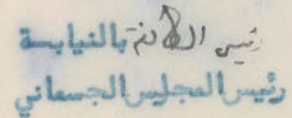 رئيس اللجنة بالنيابة
رئيس المجلس الجماعي